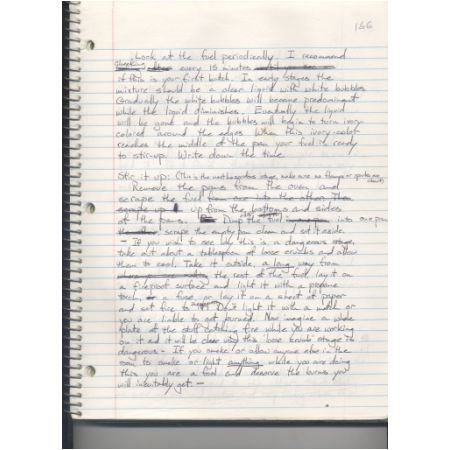 156
Look at the fuel periodically. I recommend
checking every 15 minutes
if this is your first batch. In early stages the
mixture should be a clear liquid with white bubbles
Gradually the white bubbles will become predominant
while the liquid diminishes. Eventually the liquid
will be gone and the bubbles will begin to turn ivory
colored around the edges. When this ivory color
reaches the middle of the pan your fuel is ready
to stir up. Write down the time.
Stir it up: (This is the most hazardous stage, make sure no flames or sparks are about)
Remove the pans from the oven, and
scrape the fuel
up from the bottoms and sides
of the pans. Dump the fuel into one pan
scrape the empty pan clean and set it aside.
- If you wish to see why this is a dangerous stage,
take out about a tablespoon of loose crumbs and allow
them to cool. Take it outside, a long way from
the rest of the fuel, lay it on
a fireproof surface and light it with a propane
torch, or a fuse, or lay it on a sheet of paper
and set fire to it. Don't light it with a match or
you are liable to get burned. Now imagine a whole
plate of the stuff catching fire while you are working
on it and it will be clear why this loose crumb stage is
dangerous - If you smoke or allow anyone else in the
room to smoke or light anything while you are doing
this you are a fool and deserve the burns you
will inevitably get. -